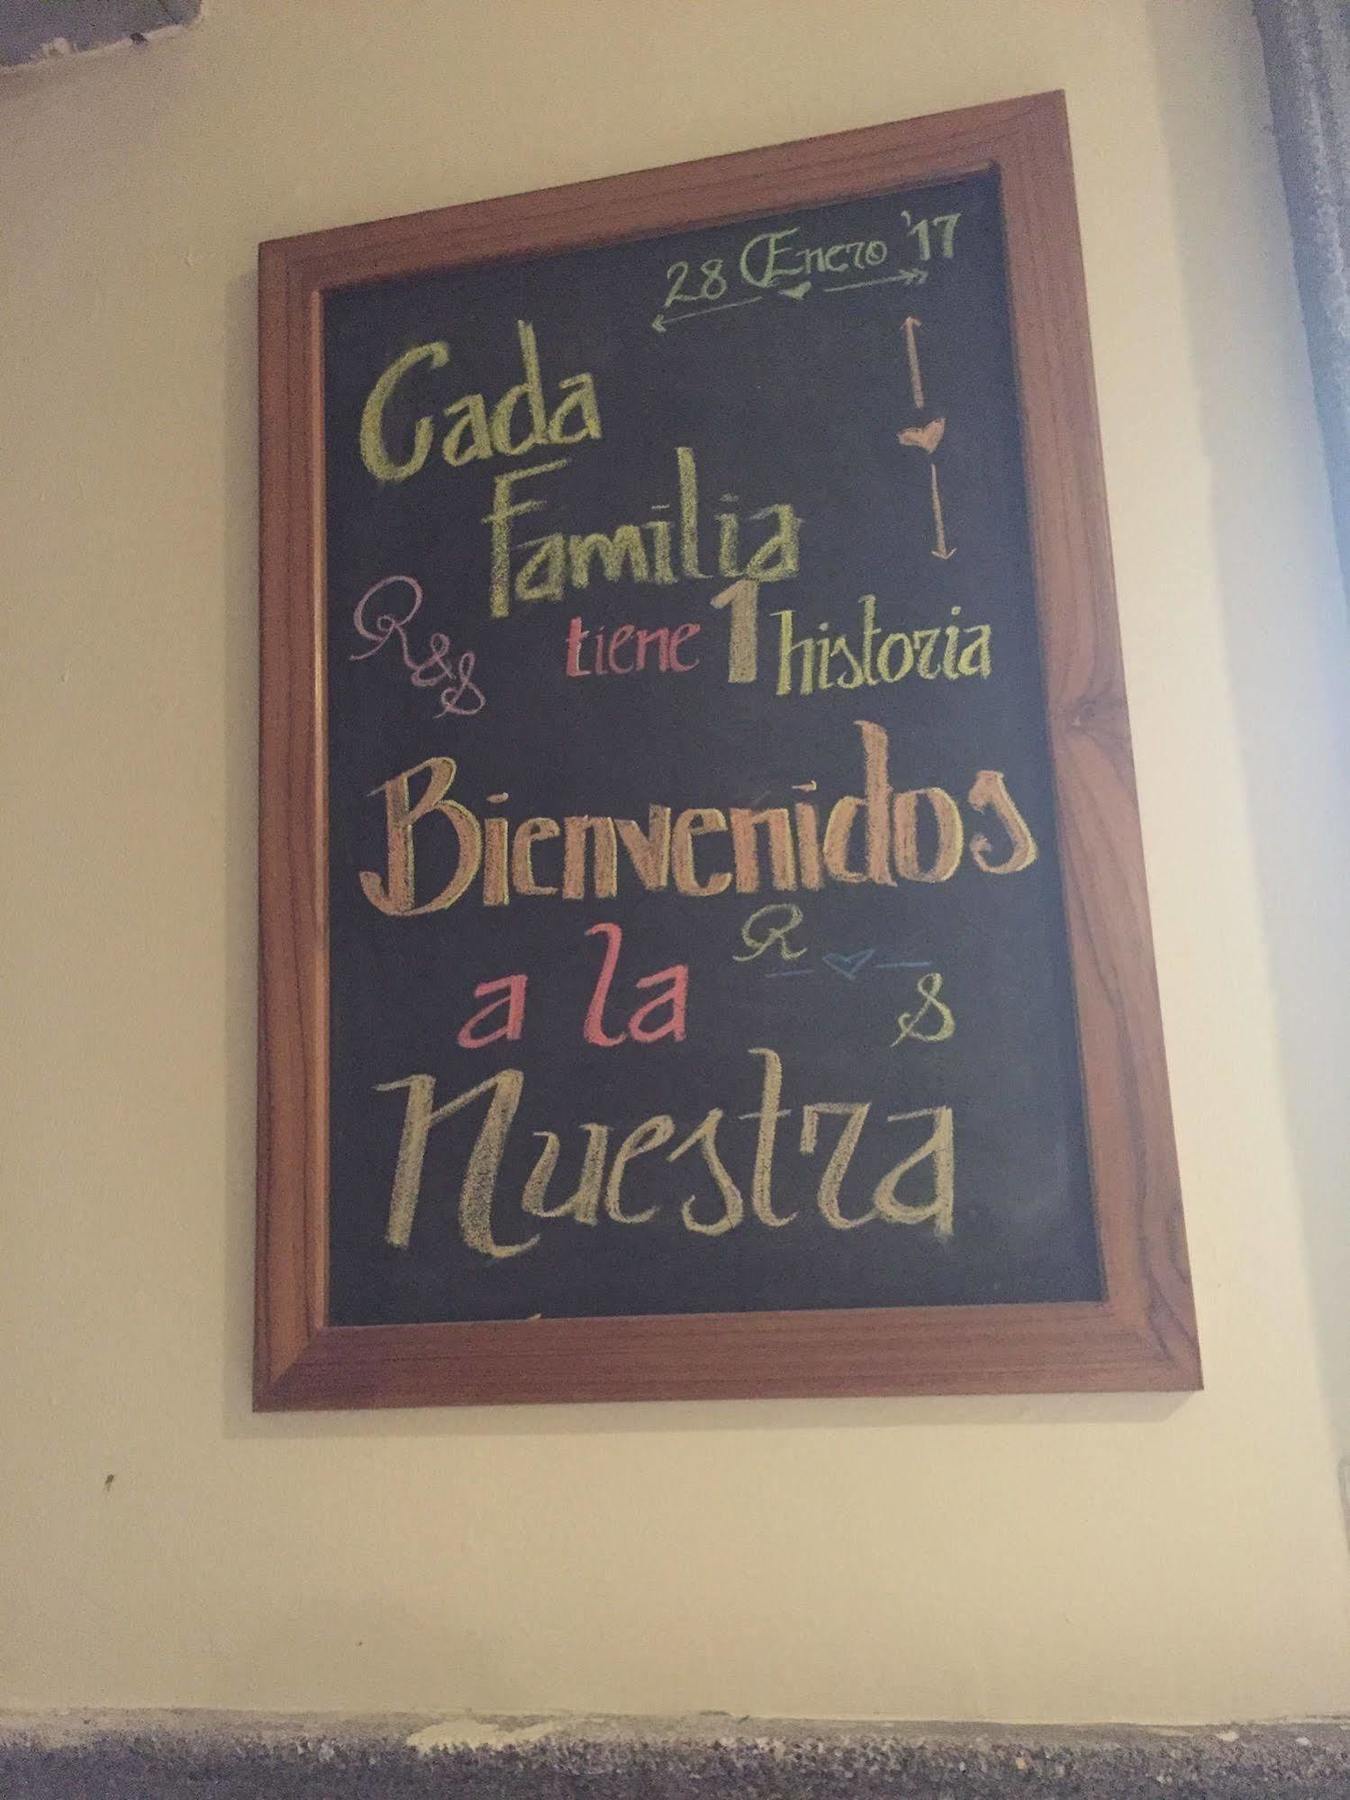 28 Enero '17
Cada
Familia
R&S
tiene 1 historia
Bienvenidos
a la
R S
Nuestra